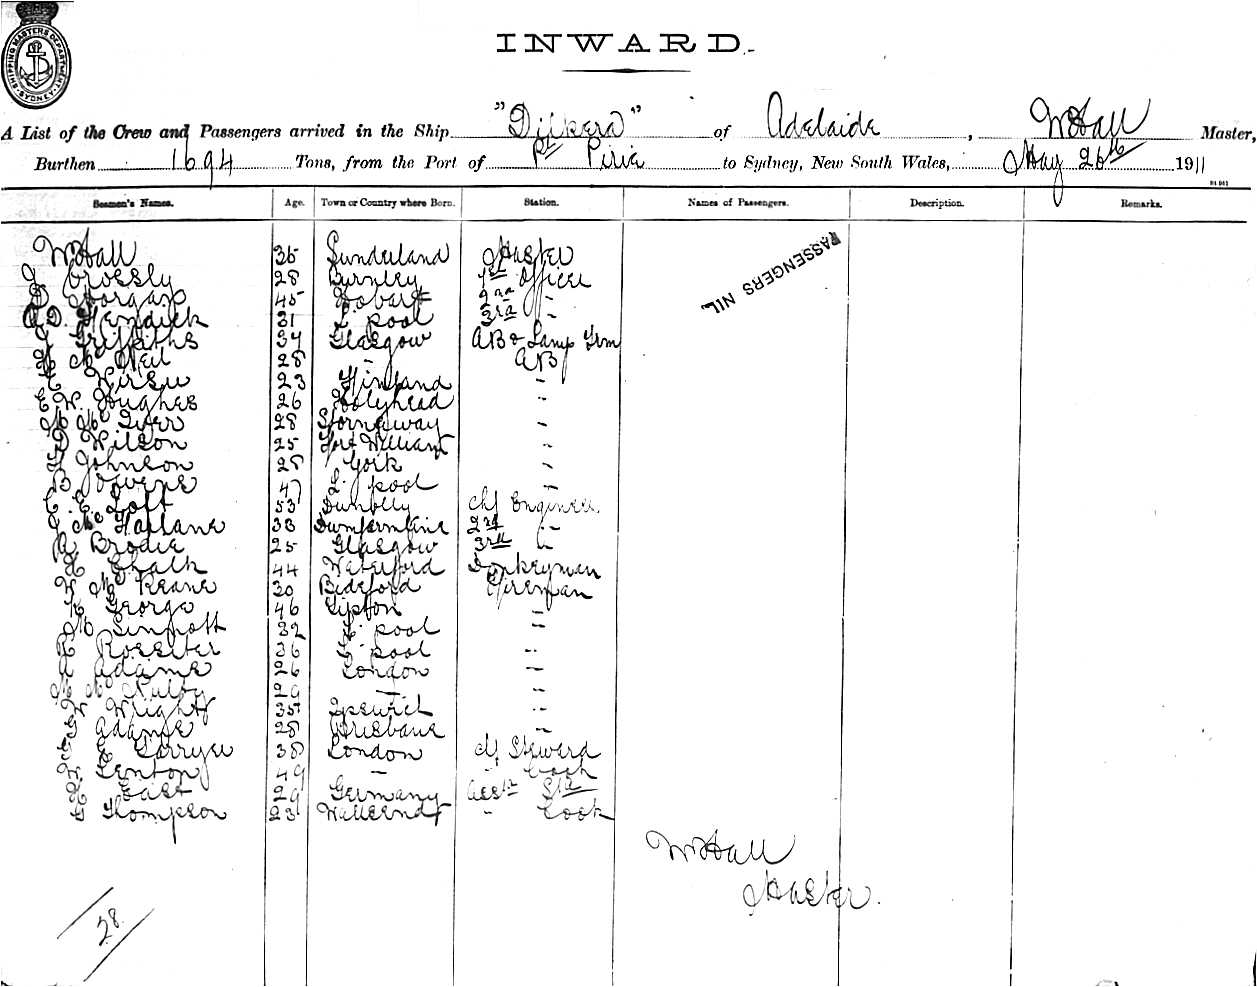 SHIPPING MASTERS DEPARTMENT SYDNEY
INWARD.
A List of the Crew and Passengers arrived in the Ship "Dilkera" of Adelaide, W Hall Master,
Burthen 1694 Tons, from the Port of Pt Pirie to Sydney, New South Wales, May 26th 1911
Seamen's Names. Age. Town or Country where Born. Station. Names of Passengers. Description. Remarks.
W Hall 36 Sunderland Master
J Crossly 28 Burnley 1st Officer
D Morgan 45 Hobart 2nd "
A.D. Kendick 31 L'pool 3rd "
Griffiths 34 Glasgow AB & Lamp Trm
Mc Neil 28 " AB
23 Finland "
E W. Hughes 26 Holyhead "
Mc Iver 28 Stornoway "
D Wilson 25 Fort William "
Johnson 28 York "
B Owens 47 L'pool "
C E Loft 53 Dunolly chf Engineer
J Mc Farlane 33 Dumfermline 2nd "
A Brodie 25 Glasgow 3rd "
Chalk 44 Waterford Donkeyman
W Mc Keane 30 Bideford Fireman
George 46 Tipton "
M Sinnott 32 L'pool "
R Rossiter 36 L'pool "
A Adams 26 London "
29 " "
W Wright 35 Ipswich "
Adams 28 Brisbane "
E 38 London chf Steward
W Fenton 49 " " Cook
East 29 Germany asst Std
Thompson 23 Wallsend " Cook
PASSENGERS NIL.
W Hall
Master.
28